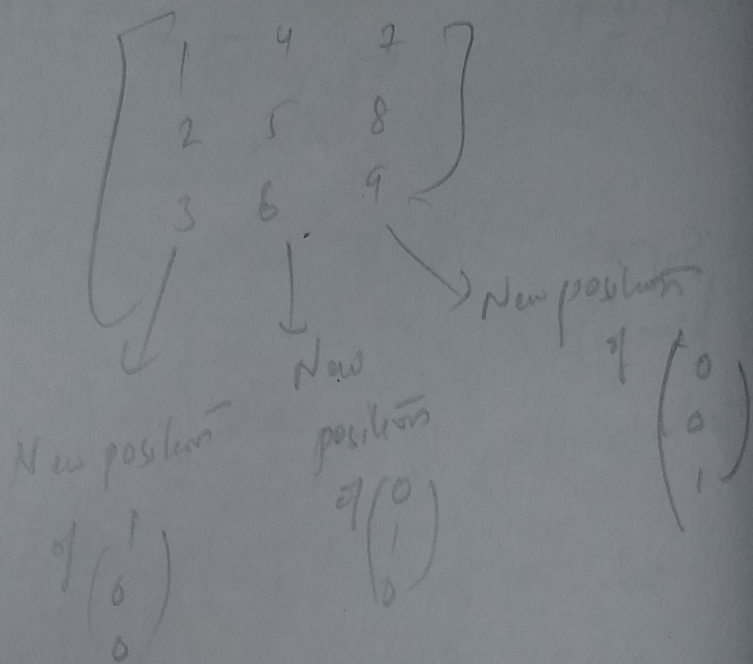 1 4 7
2 5 8
3 6 9
New position
of
0
0
1
New
position
of
0
1
0
New position
of
1
0
0